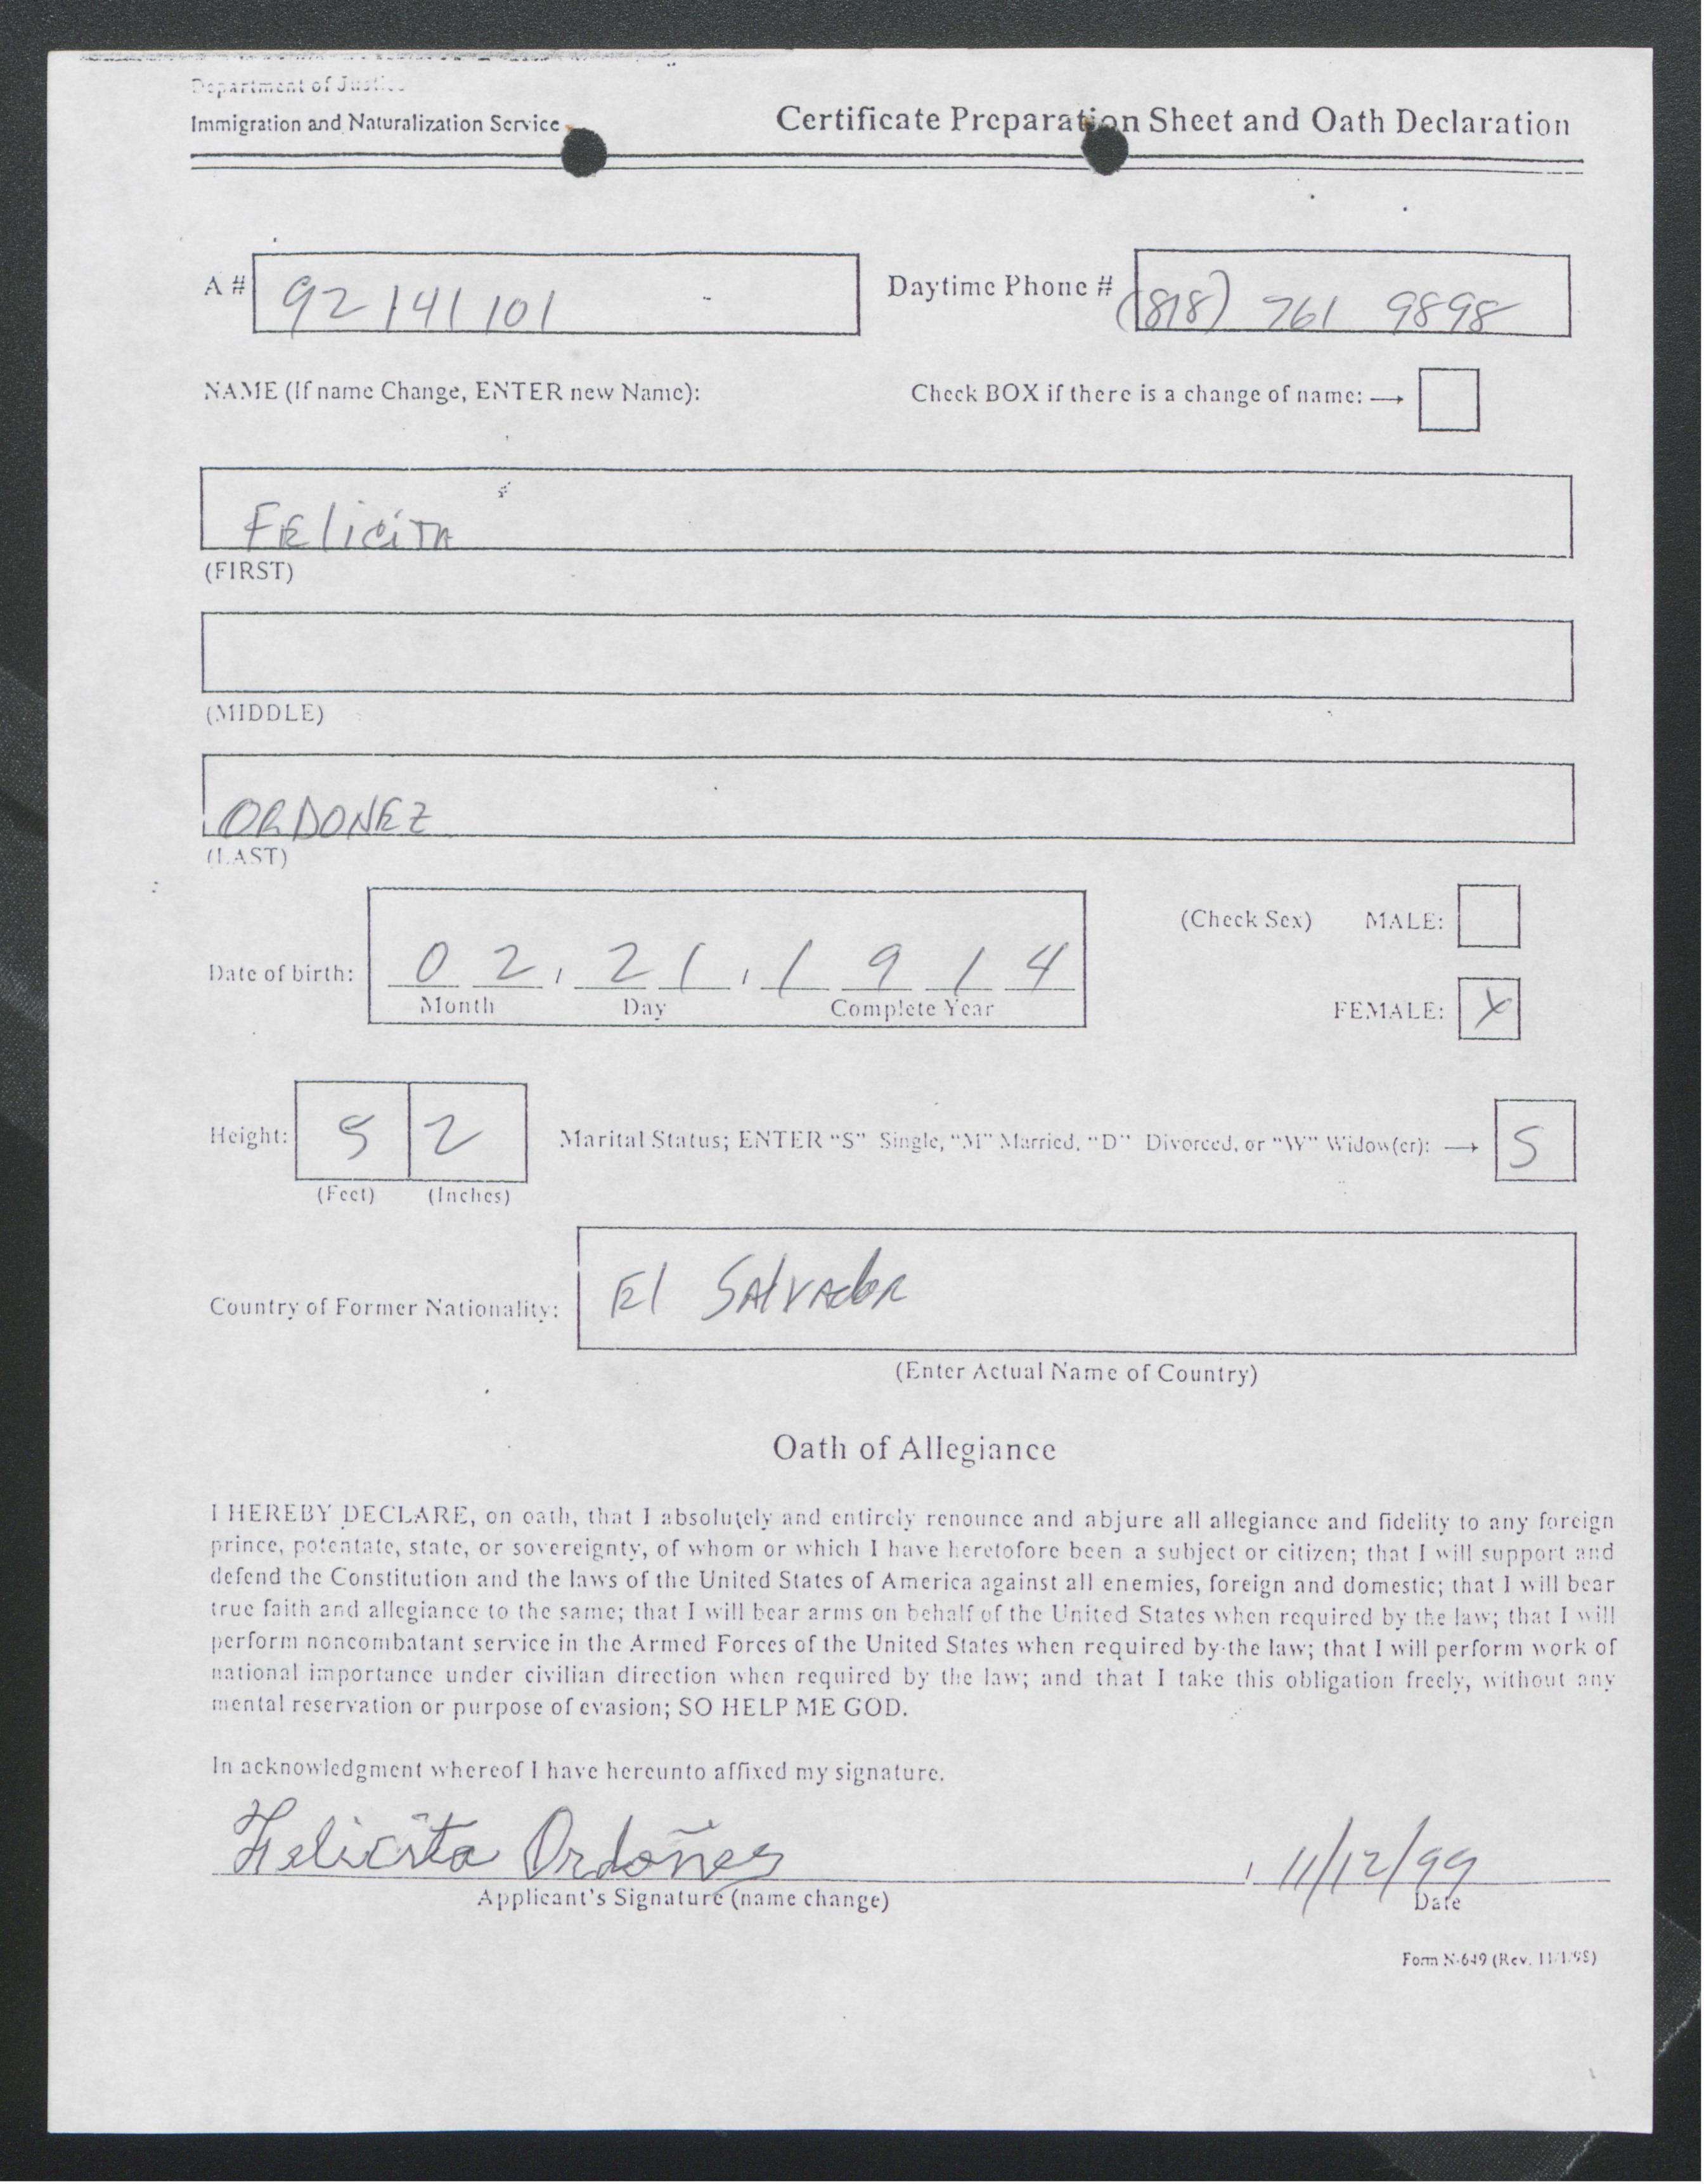 Department of Justice
Immigration and Naturalization Service
Certificate Preparation Sheet and Oath Declaration
A # 92 141 101
Daytime Phone # (818) 761 9898
NAME (If name Change, ENTER new Name):
Check BOX if there is a change of name: →
FEliciTA
(FIRST)
(MIDDLE)
ORDONEZ
(LAST)
(Check Sex) MALE:
Date of birth: 0 2 , 2 1 , 1 9 1 4
Month Day Complete Year
FEMALE: X
Height: 5 2
(Feet) (Inches)
Marital Status; ENTER "S" Single, "M" Married, "D" Divorced, or "W" Widow(er): → S
Country of Former Nationality: El SAlVAdoR
(Enter Actual Name of Country)
Oath of Allegiance
I HEREBY DECLARE, on oath, that I absolutely and entirely renounce and abjure all allegiance and fidelity to any foreign
prince, potentate, state, or sovereignty, of whom or which I have heretofore been a subject or citizen; that I will support and
defend the Constitution and the laws of the United States of America against all enemies, foreign and domestic; that I will bear
true faith and allegiance to the same; that I will bear arms on behalf of the United States when required by the law; that I will
perform noncombatant service in the Armed Forces of the United States when required by the law; that I will perform work of
national importance under civilian direction when required by the law; and that I take this obligation freely, without any
mental reservation or purpose of evasion; SO HELP ME GOD.
In acknowledgment whereof I have hereunto affixed my signature.
Felicita Ordoñes , 11/12/99
Applicant's Signature (name change) Date
Form N-649 (Rev. 11/1/98)